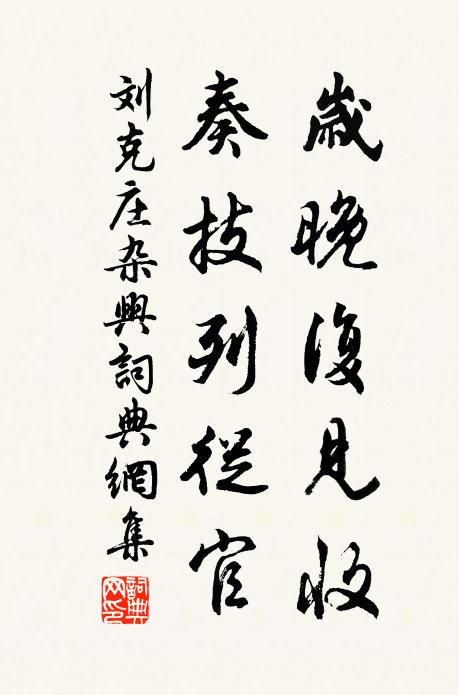 歲晚復見收
奏技列從官
刘克庄杂興詞典網集
詞典网印